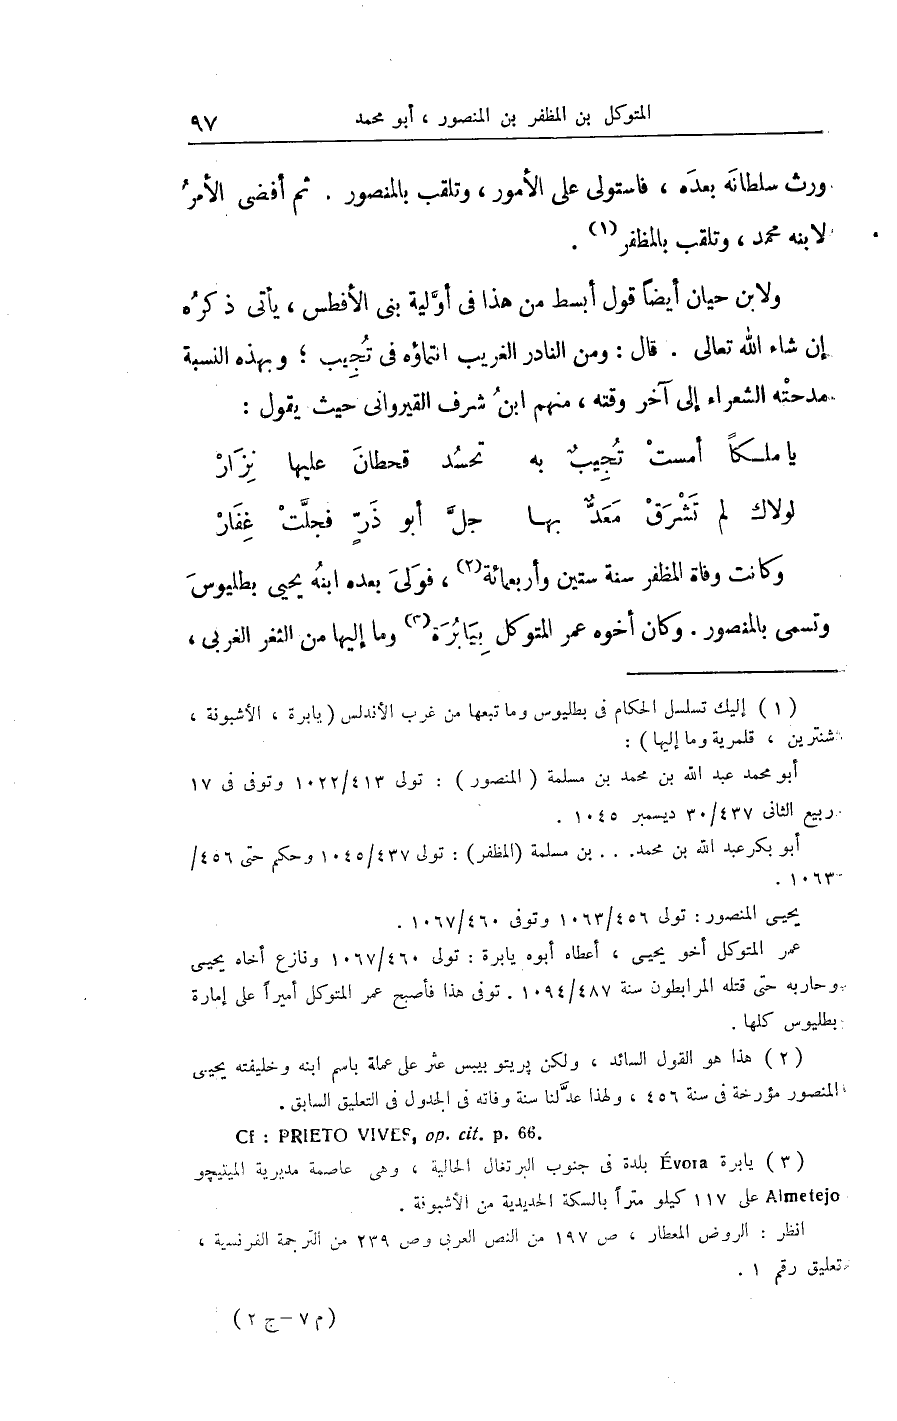 المتوكل بن المظفر بن المنصور ، أبو محمد ٩٧
ورث سلطانَه بعدَه ، فاستولى على الأمور ، وتلقب بالمنصور . ثم أفضى الأمرُ
لابنه محمد ، وتلقب بالمظفر (١) .
ولابن حيان أيضاً قول أبسط من هذا فى أوَّلية بنى الأفطس ، يأتى ذكرُه
إن شاء الله تعالى . قال : ومن النادر الغريب انتماؤه فى تُجِيب ؛ وبهذه النسبة
مدحتْه الشعراء إلى آخر وقته ، منهم ابنُ شرف القيروانى حيث يقول :
يا ملكاً أمستْ تُجِيبٌ به تحسُد قحطانَ عليها نِزَارْ
لولاك لم تَشْرَقْ مَعَدٌّ بها جلَّ أبو ذَرّ فجلَّتْ غِفَارْ
وكانت وفاة المظفر سنة ستين وأربعمائة (٢) ، فوَلىَ بعده ابنُه يحيى بطليوسَ
وتسمى بالمنصور . وكان أخوه عمر المتوكل بِيَابُرَة (٣) وما إليها من الثغر الغربى ،
(١) إليك تسلسل الحكام فى بطليوس وما تبعها من غرب الأندلس (يابرة ، الأشبونة ،
شنترين ، قلمرية وما إليها) :
أبو محمد عبد الله بن محمد بن مسلمة (المنصور) : تولى ١٠٢٢/٤١٣ وتوفى فى ١٧
ربيع الثانى ٣٠/٤٣٧ ديسمبر ١٠٤٥ .
أبو بكر عبد الله بن محمد. . . بن مسلمة (المظفر) : تولى ١٠٤٥/٤٣٧ وحكم حتى ٤٥٦/
١٠٦٣ .
يحيى المنصور : تولى ١٠٦٣/٤٥٦ وتوفى ١٠٦٧/٤٦٠ .
عمر المتوكل أخو يحيى ، أعطاه أبوه يابرة : تولى ١٠٦٧/٤٦٠ ونازع أخاه يحيى
وحاربه حتى قتله المرابطون سنة ١٠٩٤/٤٨٧ . توفى هذا فأصبح عمر المتوكل أميراً على إمارة
بطليوس كلها .
(٢) هذا هو القول السائد ، ولكن پريتو بيبس عثر على عملة باسم ابنه وخليفته يحيى
المنصور مؤرخة فى سنة ٤٥٦ ، ولهذا عدَّلنا سنة وفاته فى الجدول فى التعليق السابق .
Cf : PRIETO VIVES, op. cit. p. 66.
(٣) يابرة Évora بلدة فى جنوب البرتغال الحالية ، وهى عاصمة مديرية الميتيچو
Almetejo على ١١٧ كيلو متراً بالسكة الحديدية من الأشبونة .
انظر : الروض المعطار ، ص ١٩٧ من النص العربى وص ٢٣٩ من الترجمة الفرنسية ،
تعليق رقم ١ .
(م ٧ – ج ٢)